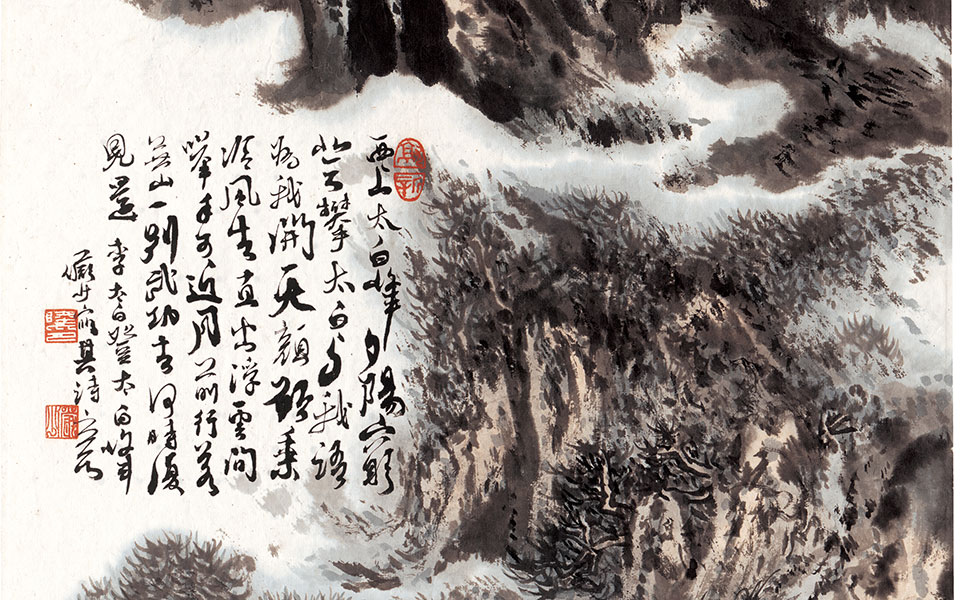 西上太白峰夕陽窮
登攀太白与我語
為我開天顏願乘
泠風去直出浮雲間
舉手可近月前行若
無山一別武功去何時復
見還
李太白登太白峰
儼少寫其詩意